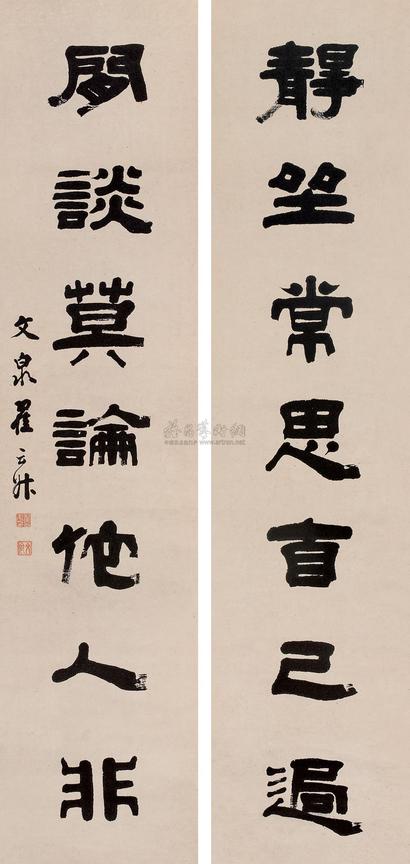 靜坐常思自己過
閒談莫論他人非
文泉翟云升
雅昌藝術網
www.artron.net